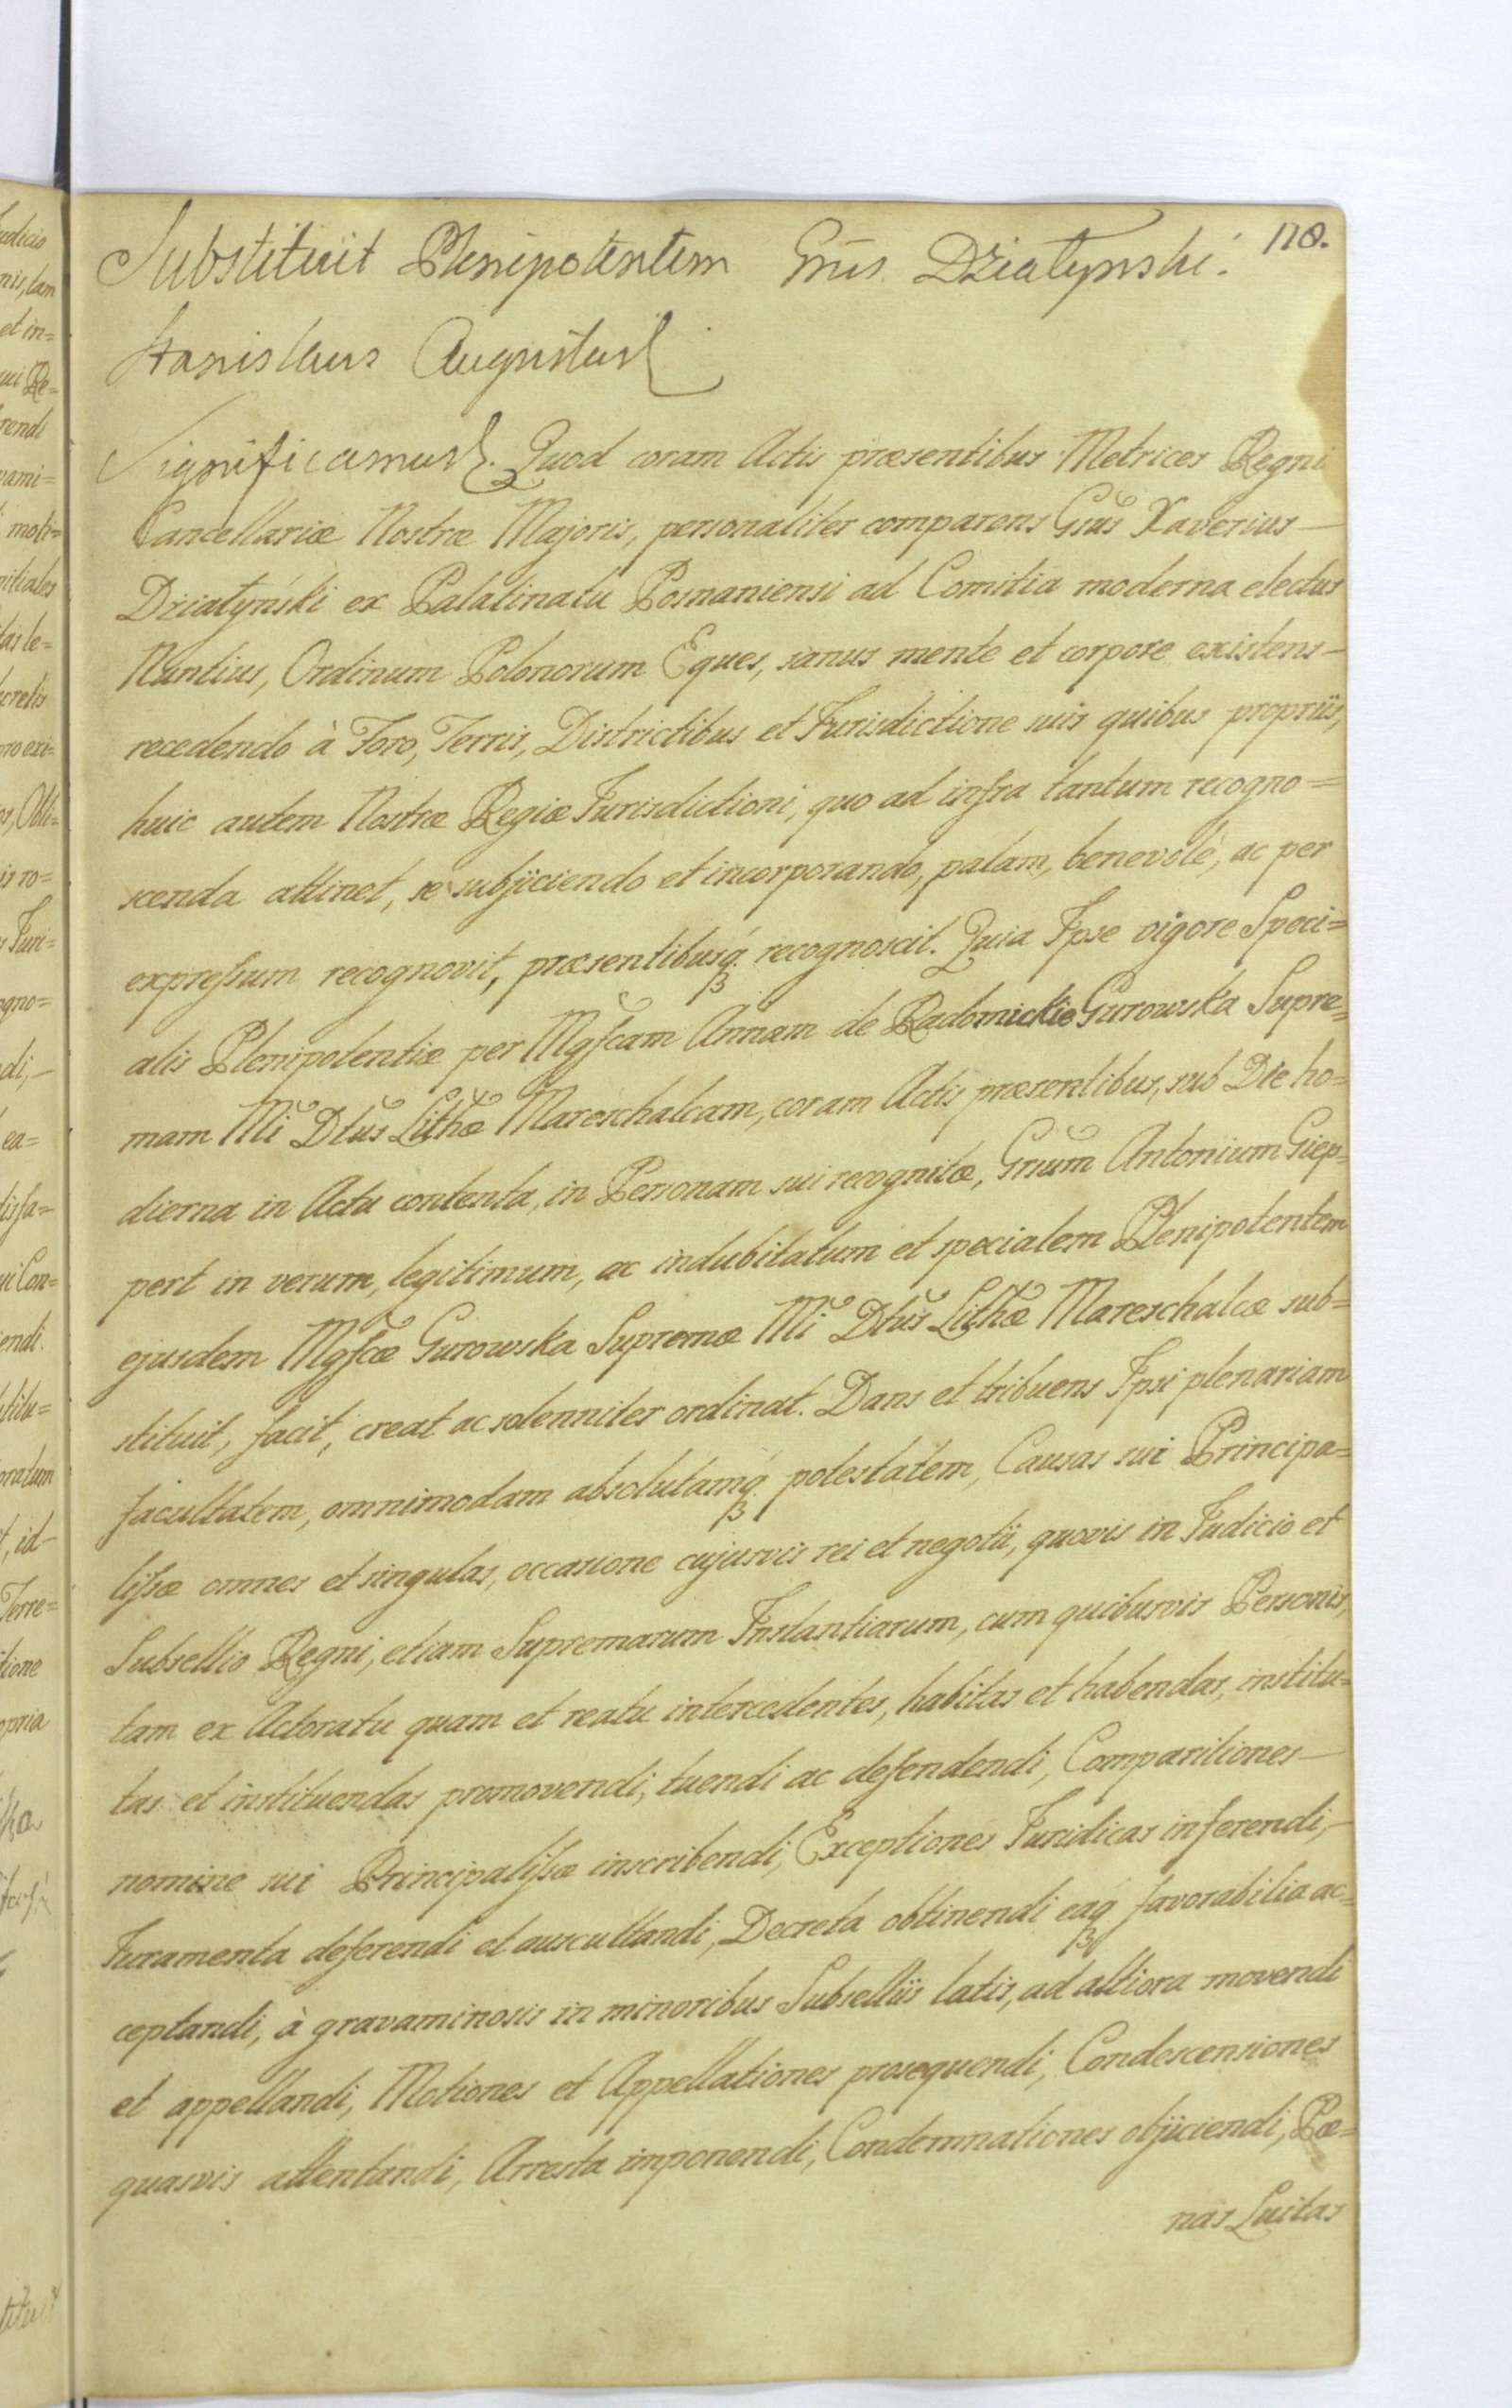 118.
Substituit Plenipotentem Gñus. Działynski.
Stanislaus Augustus
Significamus. Quod coram Actis præsentibus Metrices Regni
Cancellariæ Nostræ Majoris, personaliter comparens Gñus Xaverius
Działyński ex Palatinatu Posnaniensi ad Comitia moderna electus
Nuntius, Ordinum Polonorum Eques, sanus mente et corpore existens
recedendo à Foro, Terris, Districtibus et Jurisdictione suis quibus propriis,
huic autem Nostræ Regiæ Jurisdictioni, quo ad infra tantum recogno=
scenda attinet, se subjiciendo et incorporando, palam, benevolè, ac per
expressum recognovit, præsentibusq́ꝫ recognoscit. Quia Ipse vigore Speci=
alis Plenipotentiæ per Mgfcam Annam de Radomickie Gurowska Supre=
mam Mi Dtus Lithæ Mareschalcam, coram Actis præsentibus, sub Die ho=
dierna in Actu contenta, in Personam sui recognitæ, Gnum Antonium Giep=
pert in verum, legitimum, ac indubitatum et specialem Plenipotentem
ejusdem Mgfcæ Gurowska Supremæ Mi Dtus Lithæ Mareschalcæ sub=
stituit, facit, creat ac solenniter ordinat. Dans et tribuens Ipsi plenariam
facultatem, omnimodam absolutamq́ꝫ potestatem, Causas sui Principa=
lissæ omnes et singulas, occasione cujusvis rei et negotii, quovis in Judicio et
Subsellio Regni, etiam Supremarum Instantiarum, cum quibusvis Personis,
tam ex Actoratu quam et reatu intercedentes, habitas et habendas, institu=
tas et instituendas promovendi, tuendi ac defendendi, Comparitiones
nomine sui Principalissæ inscribendi, Exceptiones Juridicas inferendi,
Juramenta deferendi et auscultandi, Decreta obtinendi eaqꝫ favorabilia ac=
ceptandi, à gravaminosis in minoribus Subselliis latis, ad altiora movendi
et appellandi, Motiones et Appellationes prosequendi, Condescensiones
quasvis attentandi, Arresta imponendi, Condemnationes objiciendi, Pæ=
nas Luitas